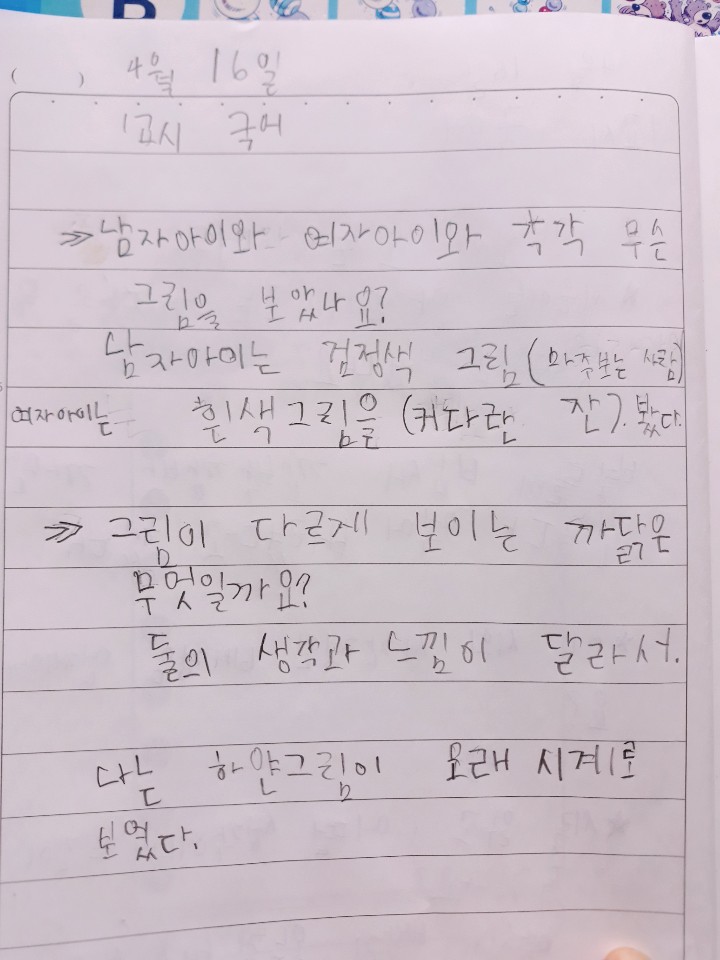 B
( ) 4월 16일
1교시 국어
≫ 남자아이와 여자아이와 각각 무슨
그림을 보았나요?
남자아이는 검정색 그림 (마주보는 사람)
여자아이는 흰색그림을 (커다란 잔). 봤다.
≫ 그림이 다르게 보이는 까닭은
무엇일까요?
둘의 생각과 느낌이 달라서.
나는 하얀그림이 모래 시계로
보였다.